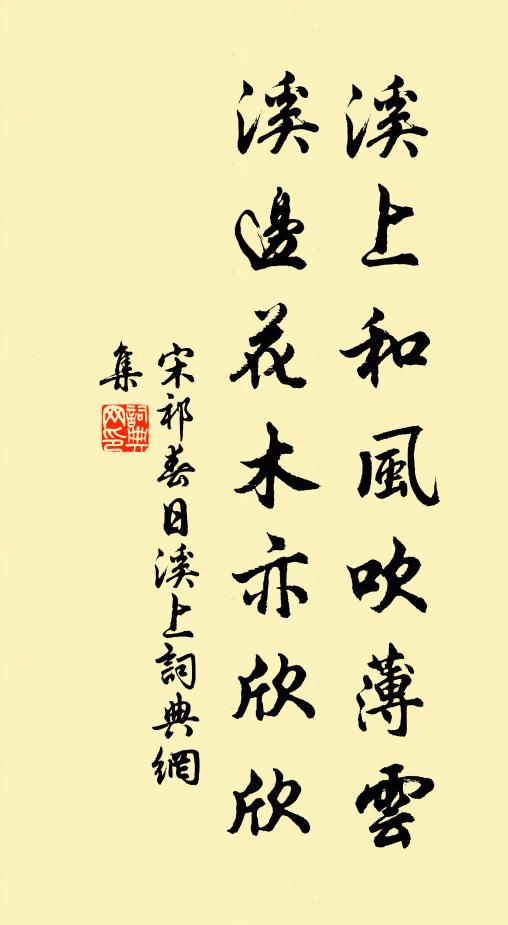 溪上和風吹薄雲
溪邊花木亦欣欣
宋祁春日溪上詞典網
集
詞典网印